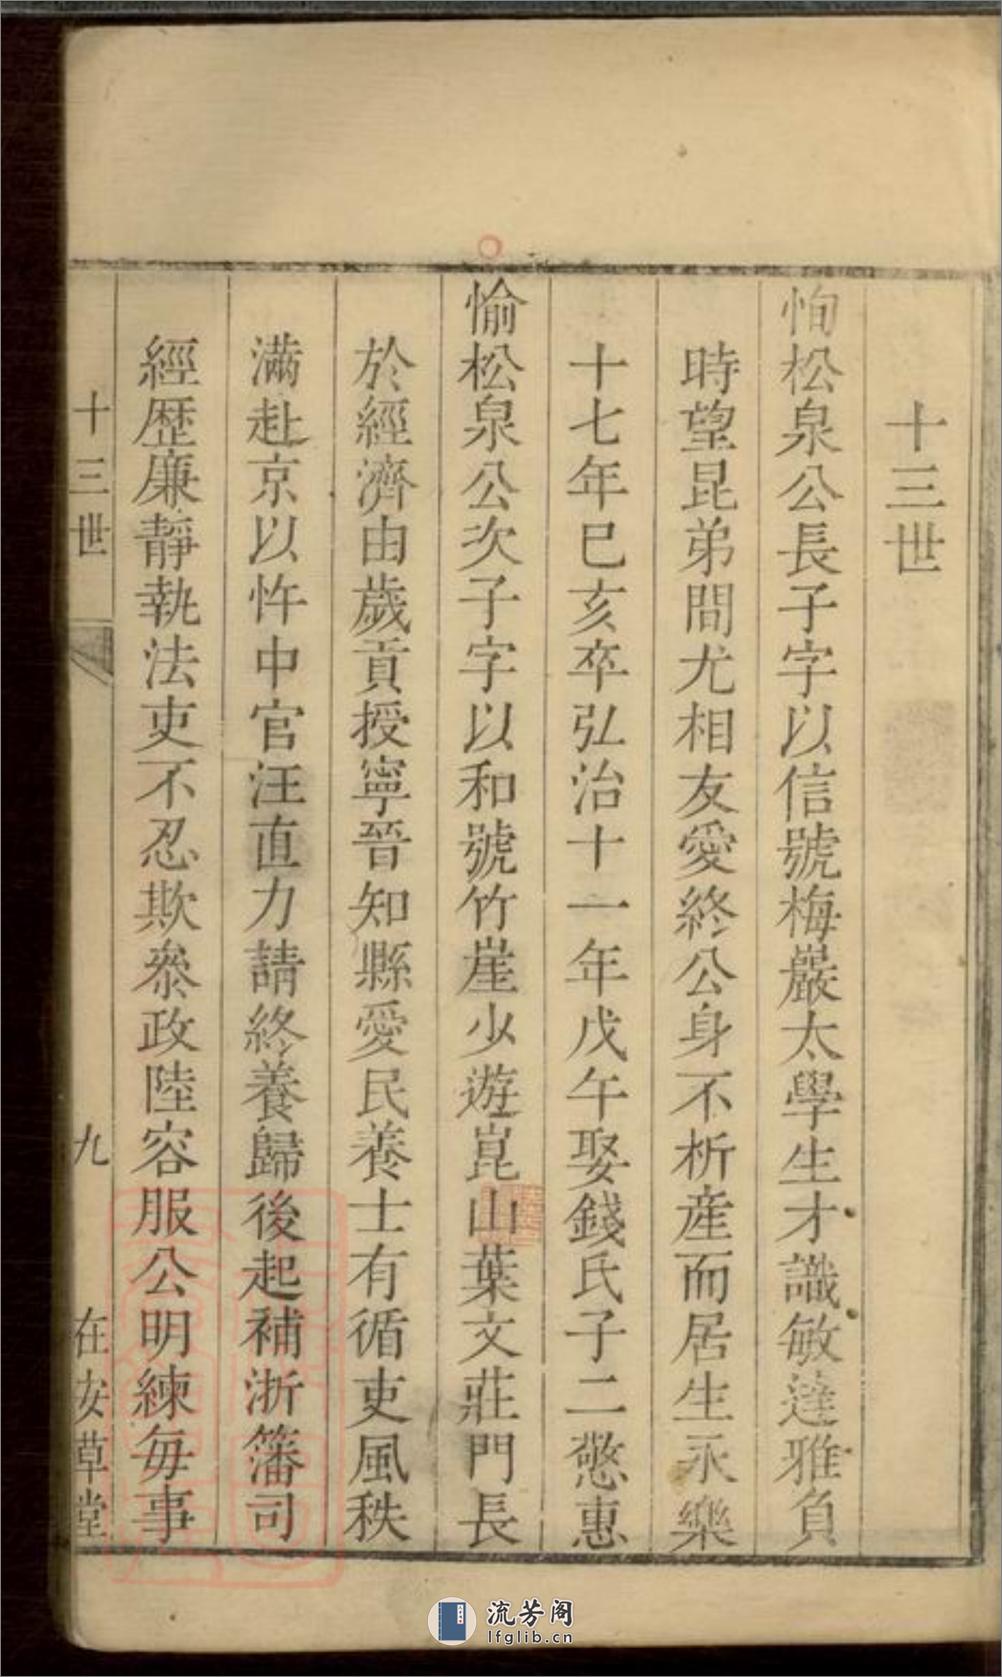 十三世
恂松泉公長子字以信號梅嚴太學生才識敏達雅負
時望昆弟間尤相友愛終公身不析產而居生永樂
十七年巳亥卒弘治十一年戊午娶錢氏子二憼惠
愉松泉公次子字以和號竹崖少遊崑山葉文莊門長
於經濟由歲貢授寧晉知縣愛民養士有循吏風秩
滿赴京以忤中官汪直力請終養歸後起補浙籓司
經歷廉靜執法吏不忍欺叅政陸容服公明練每事
十三世
九
在安草堂
流芳阁
lfglib.cn